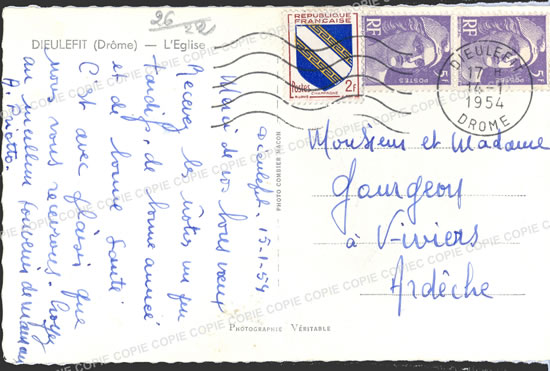 96
22
DIEULEFIT (Drôme) — L'Eglise
Dieulefit. 15-1-54
Merci de vos bons vœux
Recevez les nôtres un peu
tardifs. de bonne année
et de bonne santé
C'est avec plaisir que
nous vous recevrons.
au meilleur souvenir de
PHOTO COMBIER MACON
PHOTOGRAPHIE VÉRITABLE
REPUBLIQUE FRANÇAISE
Postes 2F
CHAMPAGNE
RF
POSTES
5F
RF
5F
DIEULEFIT
17 H
14-1
1954
DROME
Monsieur et Madame
Gourgeon
à Viviers
Ardèche
COPIE COPIE COPIE COPIE COPIE COPIE